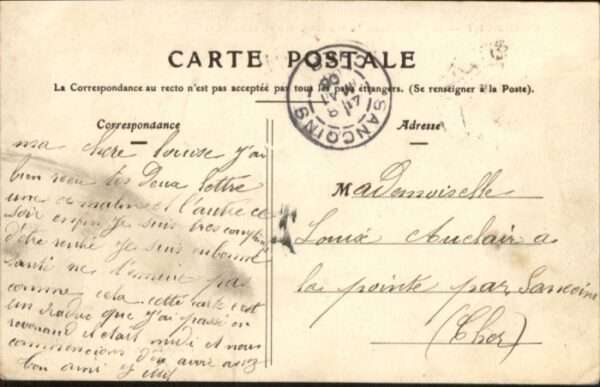 CARTE POSTALE
La Correspondance au recto n'est pas acceptée par tous les pays étrangers. (Se renseigner à la Poste).
Correspondance
Adresse
SANCOINS
CHER
ma chere Louise j'ai
bien reçu tes Deux lettre
une ce matin et l'autre ce
soir enfin je suis tres
d'être rentré je suis en bonne
santé ne t'ennuit pas
comme cela cette carte c'est
un viaduc que j'ai passé en
revenant il était midi et nous
commencions d'en avoir assez
ton ami
Mademoiselle
Louise Auclair a
la pointe par Sancoins
(Cher)